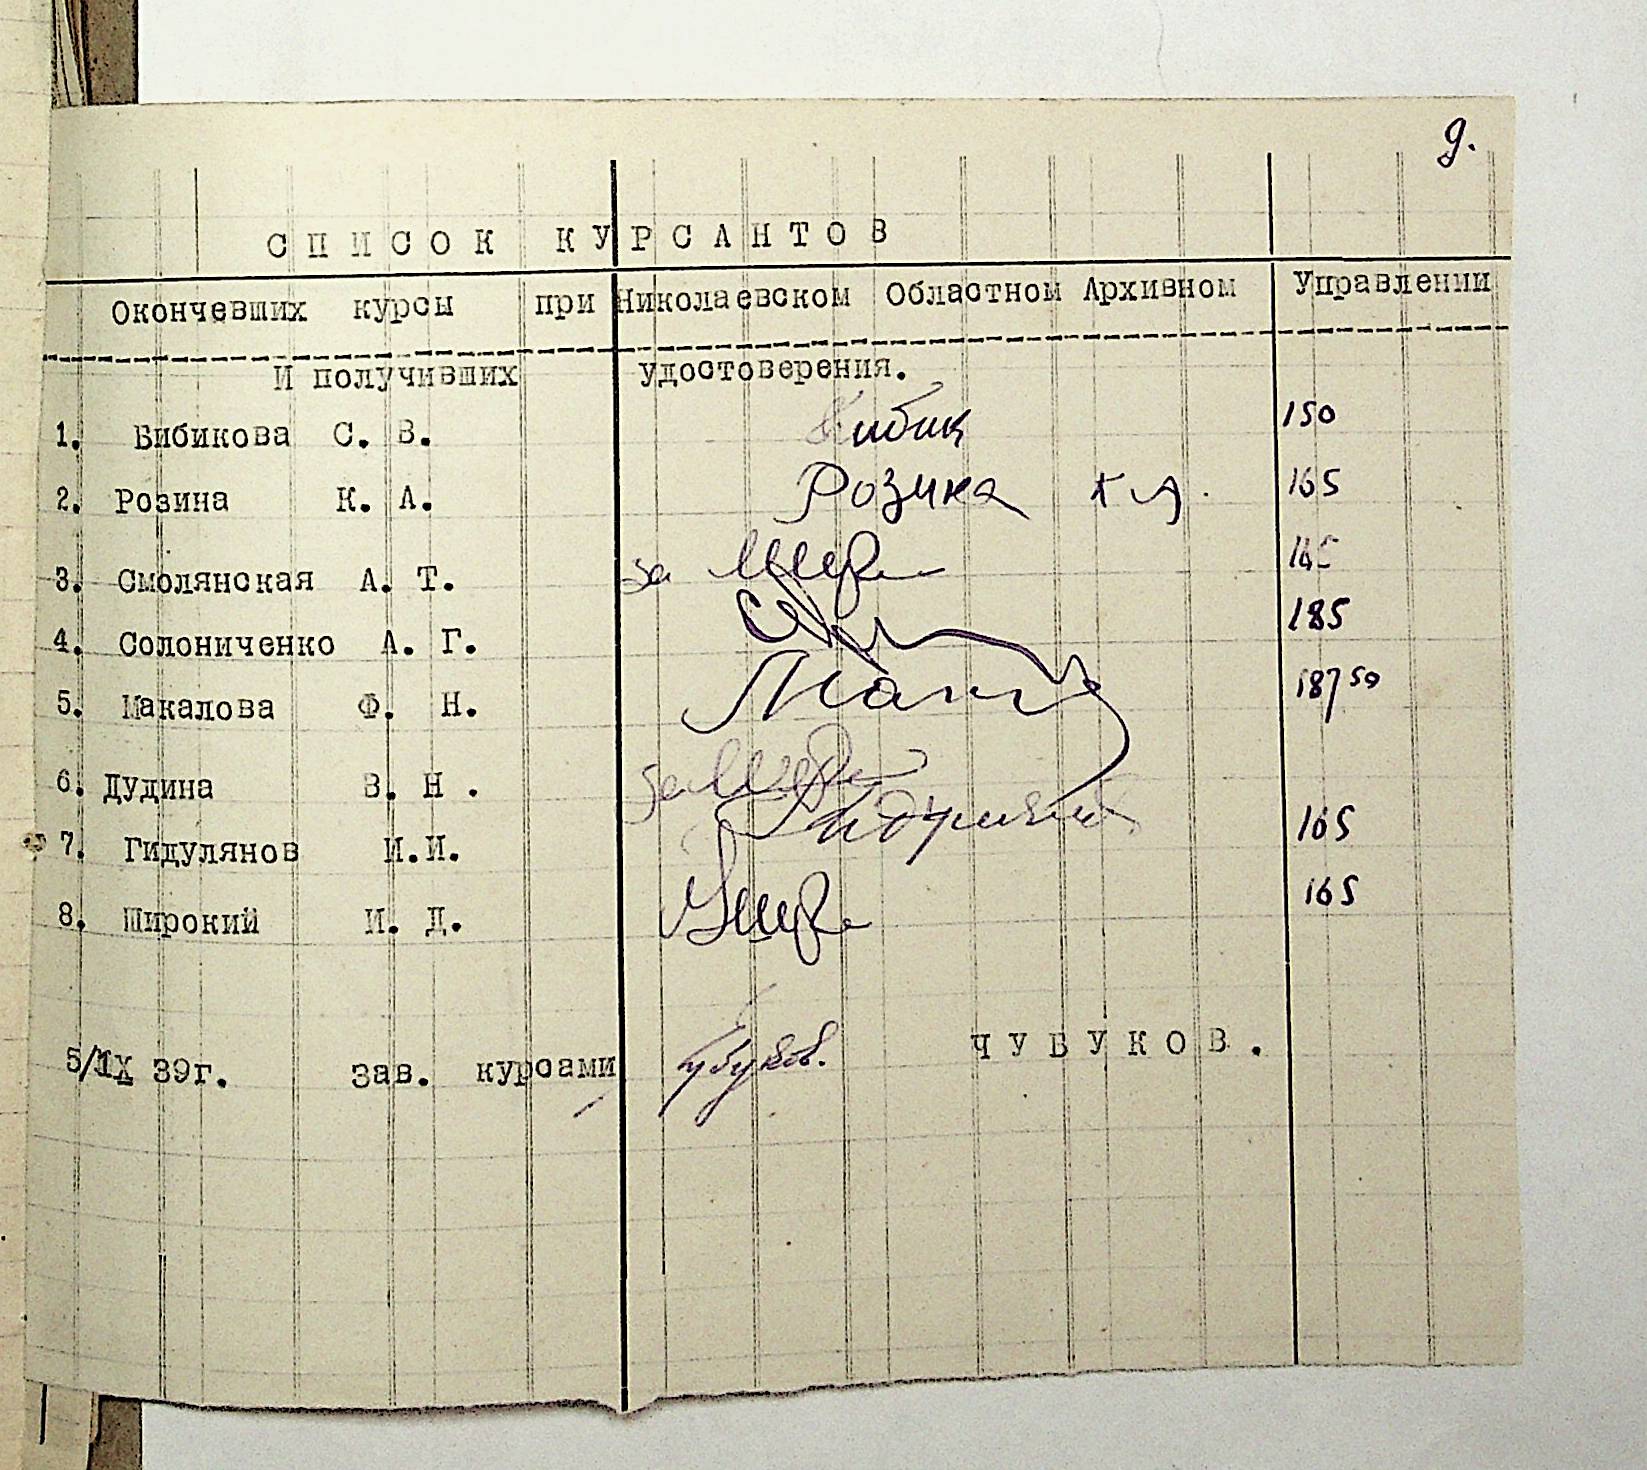 9.
СПИСОК КУРСАНТОВ
Окончевших курсы при Николаевском Областном Архивном Управлении
И получивших удостоверения.
1. Бибикова С. В. 150
2. Розина К. А. Розина К А. 165
3. Смолянская А. Т. за
4. Солониченко А. Г. 185
5. Макалова Ф. Н. 187 50
6. Дудина В. Н. за
7. Гидулянов И.И. 165
8. Широкий И. Д. 165
5/IX 39г. Зав. курсами Чубуков. ЧУБУКОВ.